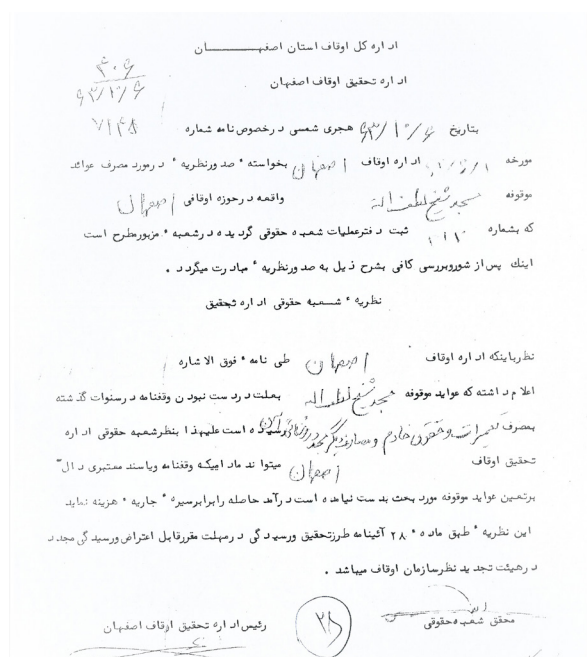 اداره کل اوقاف استان اصفهان
اداره تحقیق اوقاف اصفهان
۴۰۶
۶۳/۱۰/۶
۷۱۴۸
بتاریخ ۶۳/۱۰/۶ هجری شمسی درخصوص نامه شماره
مورخه اداره اوقاف اصفهان بخواسته صدور نظریه در مورد مصرف عوائد
موقوفه مسجد شیخ لطف اله واقعه در حوزه اوقافی اصفهان
که بشماره ثبت دفتر عملیات شعبه حقوقی گردیده در شعبه مزبور مطرح است
اینك پس از شور و بررسی کافی بشرح ذیل به صدور نظریه مبادرت میگردد .
نظریه شعبه حقوقی اداره تحقیق
نظر باینکه اداره اوقاف اصفهان طی نامه فوق الاشاره
اعلام داشته که عواید موقوفه مسجد شیخ لطف اله بعلت در دست نبودن وقفنامه در سنوات گذشته
بمصرف تعمیرات و حقوق خادم و مصارف دیگر مسجد رسیده است علیهذا بنظر شعبه حقوقی اداره
تحقیق اوقاف اصفهان میتواند مادامیکه وقفنامه ویا سند معتبری دال
برتعیین عواید موقوفه مورد بحث بدست نیامده است درآمد حاصله را برابر سیره جاریه هزینه نماید
این نظریه طبق ماده ۲۸ آئینامه طرز تحقیق ورسیدگی در مهلت مقرر قابل اعتراض ورسیدگی مجدد
در هیئت تجدید نظر سازمان اوقاف میباشد .
محقق شعبه حقوقی
رئیس اداره تحقیق اوقاف اصفهان
۳۸